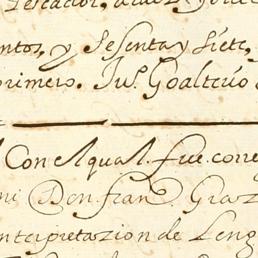 Pescador,
ntos, y Sesenta y Siete,
primero. Ju.º Goalterio
Con el qual fue corre
mi Don fran.º Graz
interpretazion de Leng